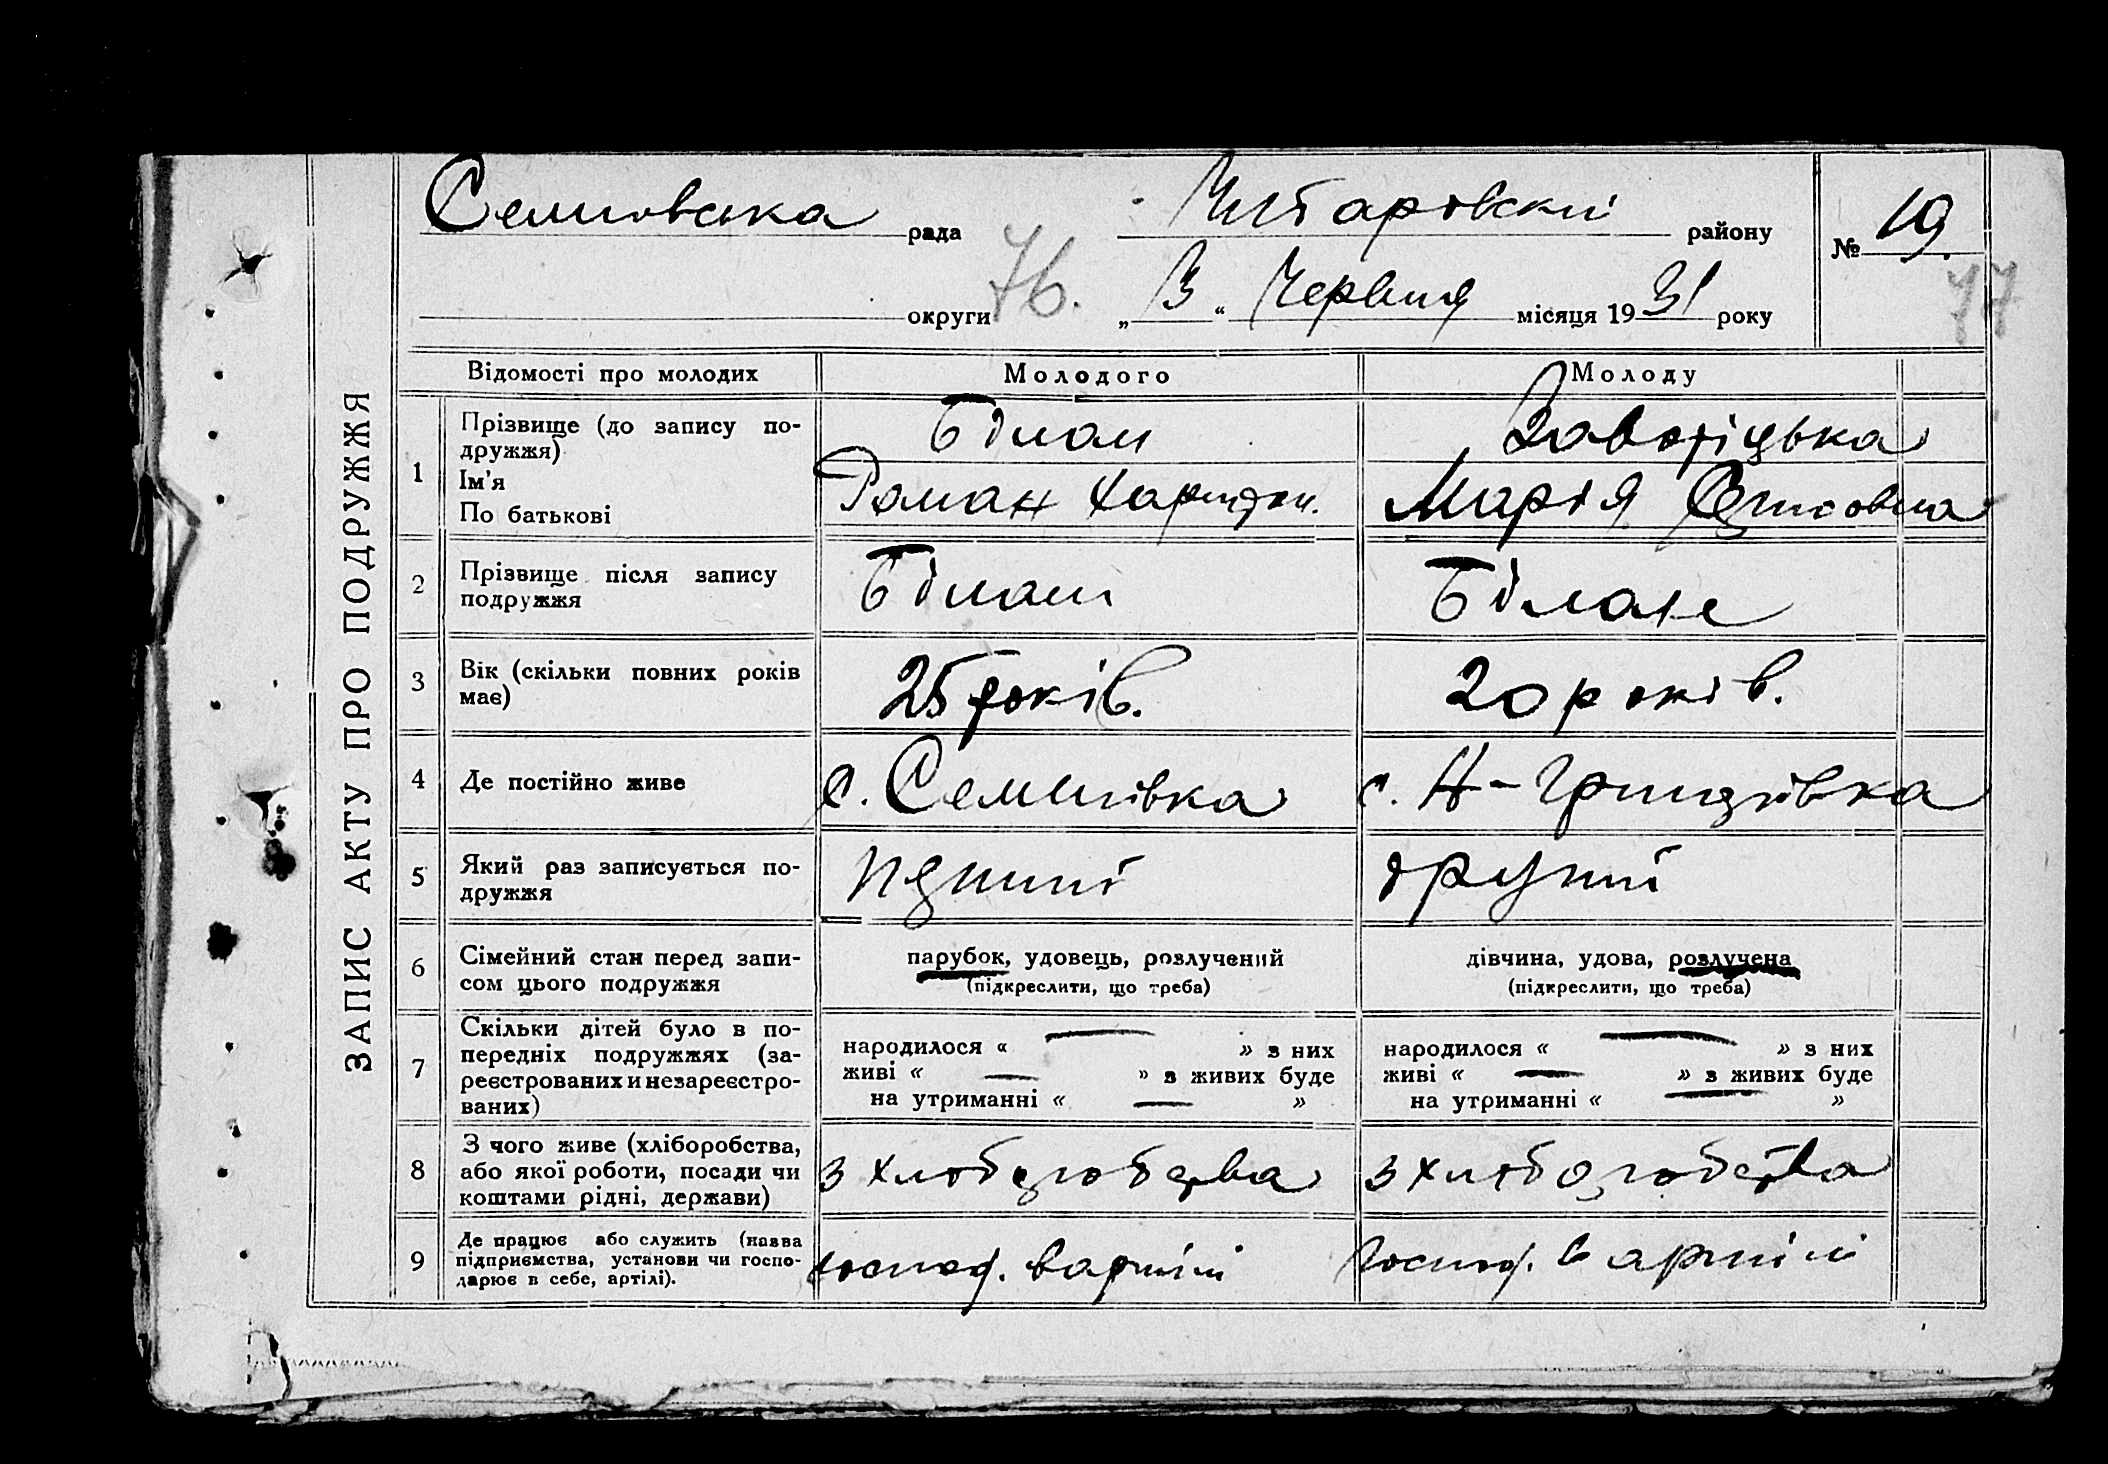 Семиовська рада
Чистаровскій району
№ 19.
76.
77
округи „ 3 “ Червня місяця 1931 року
ЗАПИС АКТУ ПРО ПОДРУЖЖЯ
Відомості про молодих Молодого Молоду
1 Прізвище (до запису по-
дружжя)
Ім'я
По батькові
Білан
Роман Харитон.
Заворіцька
Марія
2 Прізвище після запису
подружжя
Білан
Білане
3 Вік (скільки повних років
має)
25 років.
20 років.
4 Де постійно живе
с. Семинівка
с. Н-
5 Який раз записується по-
дружжя
другий
6 Сімейний стан перед запи-
сом цього подружжя
парубок, удовець, розлучений
(підкреслити, що треба)
дівчина, удова, розлучена
(підкреслити, що треба)
7 Скільки дітей було в по-
передніх подружжях (за-
реєстрованих и незареєстро-
ваних)
народилося « — » з них
живі « — » з живих буде
на утриманні « — »
народилося « — » з них
живі « — » з живих буде
на утриманні « — »
8 З чого живе (хліборобства,
або якої роботи, посади чи
коштами рідні, держави)
з хліборобства
з хліборобства
9 Де працює або служить (назва
підприємства, установи чи госпо-
дарює в себе, артілі).
господ. в артілі
господ. в артілі